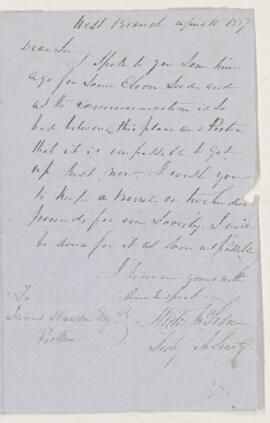 West Branch April 10 1857
Dear Sir
I Spoke to you Some time
ago for Some Clover Seed and
as the communication is So
bad between this place and Pictou
that it is impossible to get
up Just now. I wish you
to Keep a Barrel or two hundred
pounds for our Society. I will
be down for it as Soon as possible
I remain yours with
due Respect
To
James Dawson Esqr
Pictou
Secty